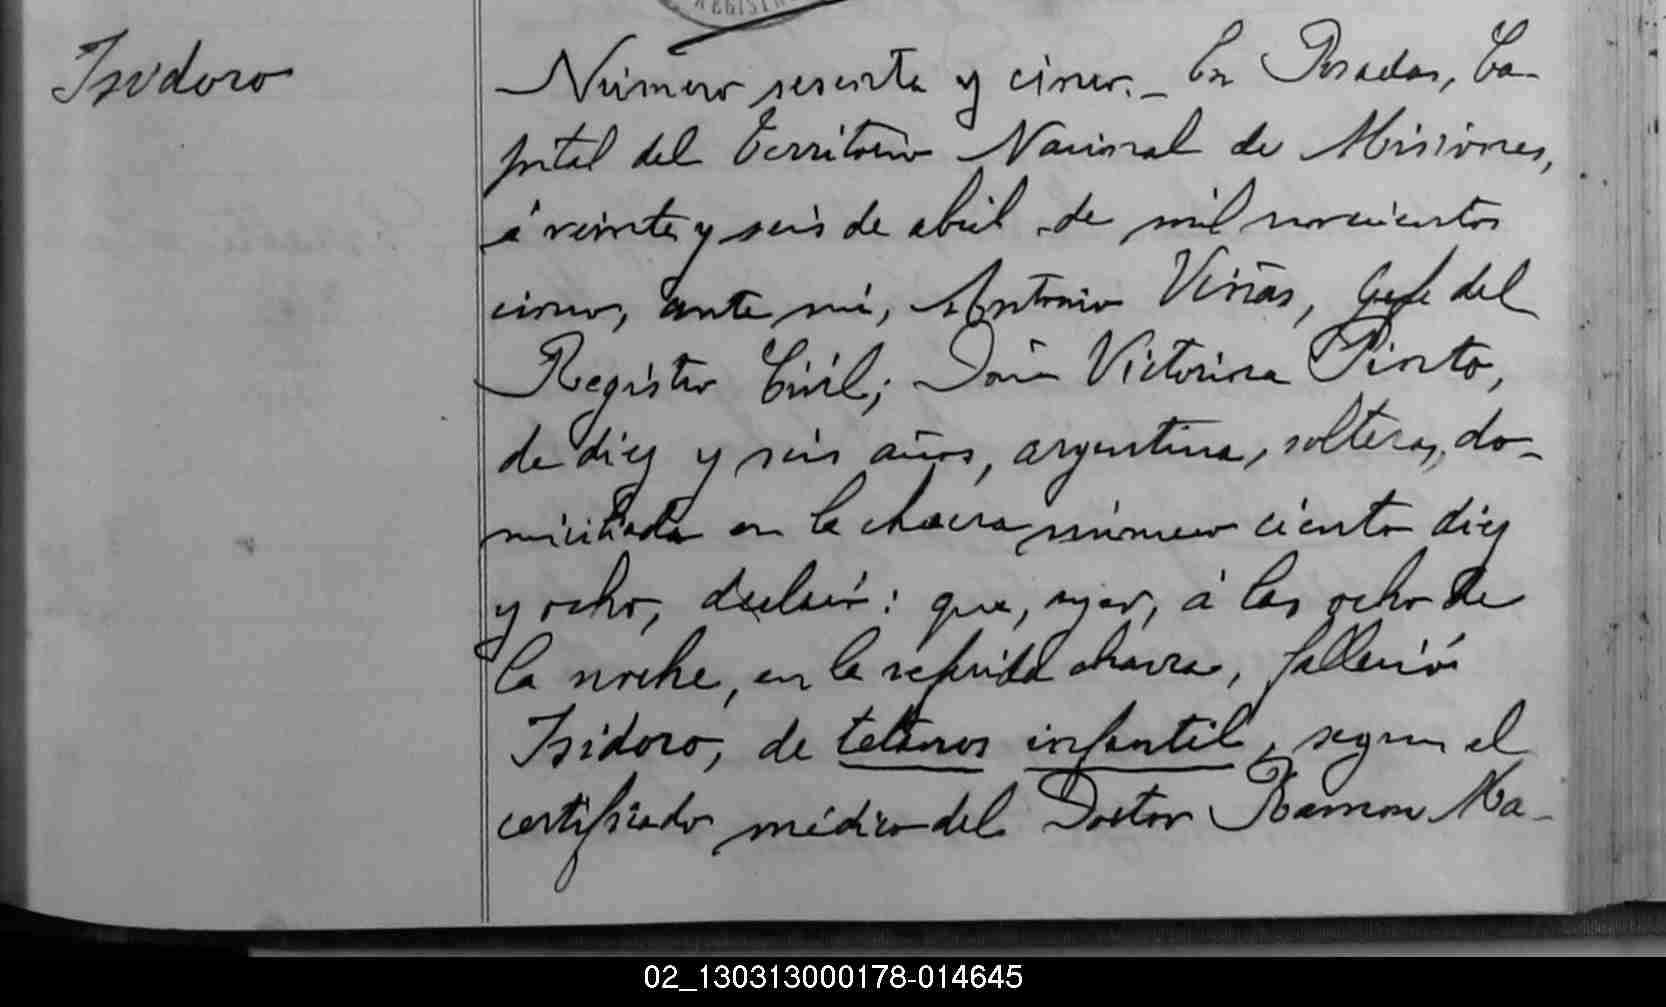 REGIST
Isidoro
Número sesenta y cinco._ En Posadas, Ca-
pital del Territorio Nacional de Misiones,
á veinte y seis de abril de mil novecientos
cinco, ante mí, Antonio Viñas, Gefe del
Registro Civil; Doña Victorina Pinto,
de diez y seis años, argentina, soltera, do-
miciliada en la chacra número ciento diez
y ocho, declaró: que, ayer, á las ocho de
la noche, en la referida chacra, falleció
Isidoro, de tetanos infantil, segun el
certificado médico del Doctor Ramon Ma-
02_130313000178-014645